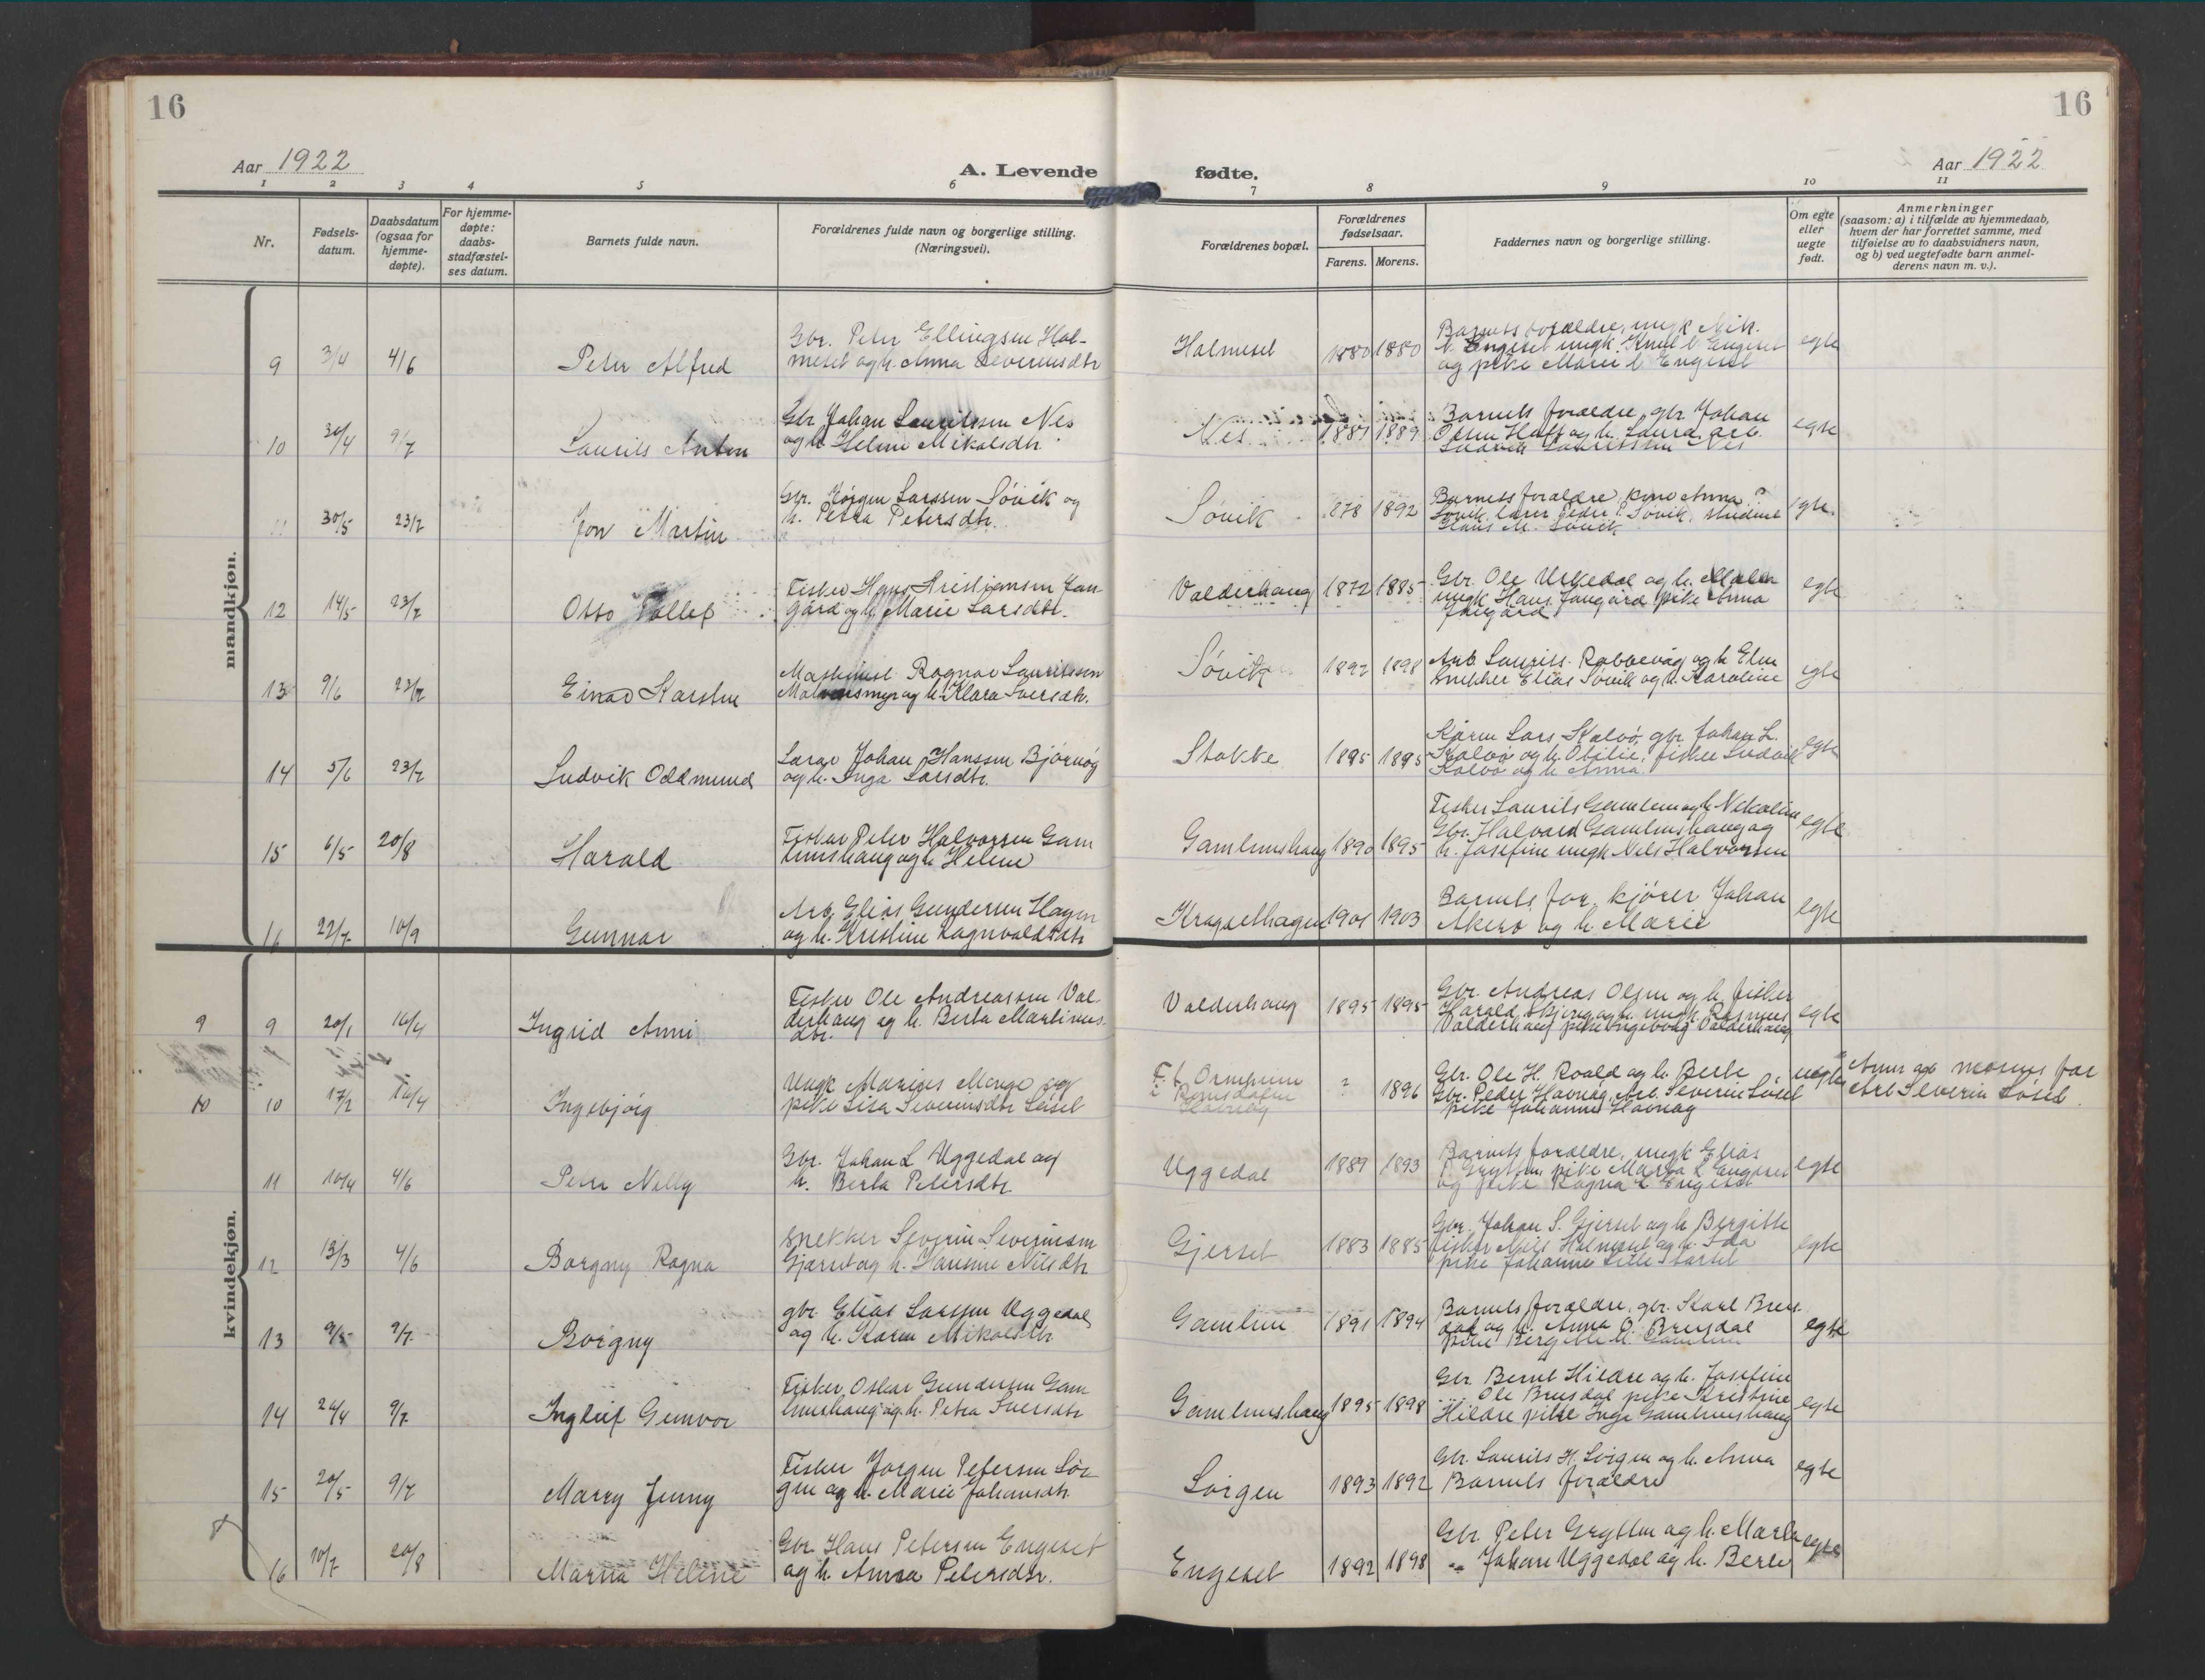 16
16
Aar 1922
A. Levende
fødte.
Aar 1922
1 2 3 4 5 6 7 8 9 10 11
Nr.
Fødsels-
datum.
Daabsdatum
(ogsaa for
hjemme-
døpte).
For hjemme-
døpte:
daabs-
stadfæstel-
ses datum.
Barnets fulde navn.
Forældrenes fulde navn og borgerlige stilling.
(Næringsvei).
Forældrenes bopæl.
Forældrenes
fødselsaar.
Farens. Morens.
Faddernes navn og borgerlige stilling.
Om egte
eller
uegte
født.
Anmerkninger
(saasom: a) i tilfælde av hjemmedaab,
hvem der har forrettet samme, med
tilføielse av to daabsvidners navn,
og b) ved uegtefødte barn anmel-
derens navn m. v.).
mandkjøn.
9 3/4 4/6 Peter Alfred
Gbr. Peter Ellingsen Hol-
meset og h. Anna Severinsdtr
Holmeset 1880 1880
Barnets forældre, ungk Nik.
Engeset ungk. Knut Engeset
og pike Marie Engeset
egte
10 30/4 9/7 Laurits Anton
Gbr Johan Lauritssen Nes
og h Helene Mikalsdtr.
Nes 1881 1889
Barnets forældre, gbr Johan
Olsen og h. Laura, arb.
Ludvik Lauritssen Nes
egte
11 30/5 23/7 Jon Martin
Gbr. Jørgen Larssen Søvik og
h. Petra Petersdtr.
Søvik 1878 1892
Barnets forældre, kone Anna
Søvik, lærer Peder P. Søvik, student
Hans M. Søvik
egte.
12 14/5 23/7 Otto Tollef
Fisker Hans Kristjansen Fan-
gård og h. Marie Larsdtr.
Valderhaug 1872 1885
Gbr. Ole Urkedal og h.
ungk Hans Fangård pike Anna
Fangård
egte
13 9/6 23/7 Einar Karsten
Maskinist Ragnar Lauritssen
og h. Klara Iversdtr.
Søvik 1892 1898
Arb. Laurits Rabbevåg og h Elen
Snekker Elias Søvik og h. Karoline
egte
14 5/6 23/7 Ludvik Oddmund
Lærer Johan Hanssen Bjørnøy
og h. Inga Larsdtr.
Stokke 1895 1895
Lars Kalvø, gbr. Johan L.
Kalvø og h. Otilie, fisker Ludvik
Kalvø og h Anna
egte
15 6/5 20/8 Harald
Fisker Peter Halvorsen Gam
lemshaug og h Helene
Gamlemshaug 1890 1895
Fisker Laurits Gamlem og h Nikoline
Gbr. Halvard Gamlemshaug og
h. Josefine ungk. Nels Halvorsen
egte
16 22/7 10/9 Gunnar
Arb. Elias Gundersen Hagen
og h. Kristine Ragnvaldsdtr
1901 1903
Barnets for. kjører Johan
Akerø og h. Marie
egte
kvindekjøn.
9 9 20/1 16/4 Ingrid Anni
Fisker Ole Andreassen Val
derhaug og h. Berta Martinus-
dtr.
Valderhaug 1895 1895
Gbr. Andreas Olsen og h. fisker
Harald og h. ungk. Rasmus
Valderhaug pike Ingeborg Valderhaug
egte
10 10 17/2 16/4 Ingebjørg
Ungk. Marius Monge og
pike Lisa Severinsdtr Løset
F. f. Ormheim
i Romsdalen
Havnøg
? 1896
Gbr. Ole H. Roald og h. Berte
Gbr. Peder Havnøg, Arb. Severin Løset
pike Johanne Havnøg
uegte
Anm av morens far
Arb Severin Løset
11 10/4 4/6 Nelly
Gbr. Johan L Uggedal og
h. Berta Petersdtr
Uggedal 1889 1893
Barnets forældre, ungk Elias
P. Grytten, pike Marta L Engeset
og pike Ragna L Engeset
egte
12 13/3 4/6 Borgny Ragna
Snekker Severin Severinsen
Gjerset og h. Nilsdtr
Gjerset 1883 1885
Gbr. Johan S. Gjerset og h Bergitte
fisker Nils Holmeset og h. Ida
pike Johanne
egte
13 9/5 9/7 Borgny
gbr. Elias Larssen Uggedal
og h. Karen Mikalsdtr
Gamlem 1891 1894
Barnets forældre, gbr. Karl Brus-
dal og h. Anna O. Brusdal
pike Bergitte Gamlem
egte
14 24/4 9/7 Ingleif Gunvor
Fisker Oskar Gundersen Gam
lemshaug og h. Petra Iversdtr
Gamlemshaug 1895 1898
Gbr. Bernt Hildre og h. Josefine
Ole Brusdal pike Kristine
Hildre pike Inga Gamlemshaug
egte
15 20/5 9/7 Marry Jenny
Fisker Jørgen Petersen Lør
gen og h. Marie Johansdtr.
Lørgen 1893 1892
Gbr. Laurits H. Lørgen og h. Anna
Barnets forældre
egte
16 10/7 20/8 Marna Helene
Gbr. Hans Petersen Engeset
og h. Anna Petersdtr.
Engeset 1892 1898
Gbr. Peter Grytten og h. Marta
" Johan Uggedal og h. Berte
egte